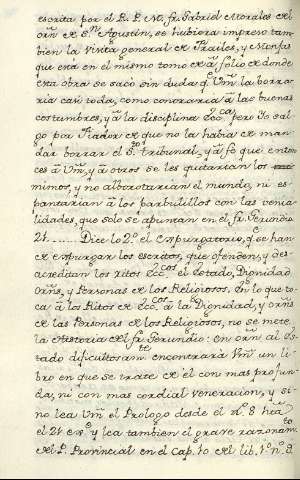 escrita por el R. P. M. fr. Gabriel Morales del
orñ de Sn. Agustin, se hubiera impreso tam-
bien la visita general de Frailes, y Monjas
que está en el mismo tomo de à folio de donde
esta obra se sacó sin duda qe. Vm̃ la borra-
ria casi toda, como contraria à las buenas
costumbres, y à la disciplina Ecca. pero Yo sal-
go por Fiador de que no la habia de man-
dar borrar el S.to tribunal, y à fe que enton-
ces à Vm̃, y à otros se les quitarian los
mimos, y no alborotarian el mundo, ni es-
pantarian à los barbidillos con las venia-
lidades, que solo se apuntan en el fr. Gerundio
21...... Dice lo 2.º el Expurgatorio, qe. se han
de expurgar los escritos, que ofenden, y des-
acreditan los ritos Eccos. el Estado, Dignidad
orñs, y Personas de los Religiosos. En lo que to-
ca à los Ritos Eccos. à la Dignidad, y orñs
de las Personas de los Religiosos, no se mete
la Historia de fr. Gerundio: en orn al Es-
tado dificultosamte. encontrará Vm̃ un li-
bro en que se trate de el con mas profun-
da, ni con mas cordial veneracion, y si-
no lea Vm̃ el Prologo desde el n.º 8 hta
el 21 y lea tambien el grave razonamto
del P. Provincial en el Cap. 10. del lib. 1.º n.º 8.